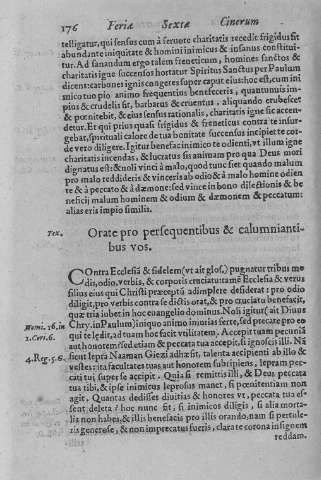 176 Feriæ Sextæ Cinerum
telligatur, qui sensus cum à feruore charitatis recedit frigidus sit
abundante iniquitate & homini inimicus & insanus constitui-
tur. Ad sanandum ergo talem freneticum, homines sanctos &
charitatis igne succensos hortatur Spiritus Sanctus per Paulum
dicens: carbones ignis congeres super caput eius: hoc est, cum ini
mico tuo pio animo frequentius benefeceris, quantumuis im-
pius & crudelis sit, barbarus & cruentus, aliquando erubescet
& pœnitebit, & eius sensus rationalis, charitatis igne sic accen-
detur. Et qui prius quasi frigidus & freneticus contra te insur-
gebat, spirituali calore de tua bonitate succensus incipiet te cor-
de vero diligere. Igitur benefac inimico te odienti, vt illum igne
charitatis incendas, & lucratus sis animam pro qua Deus mori
dignatus est: & noli vinci à malo, quod tunc fiet quando malum
pro malo reddideris & vinceris ab odio & à malo homine odien
te & à peccato & à dæmone: sed vince in bono dilectionis & be
neficij malum hominem & odium & dæmonem & peccatum:
alias eris impio similis.
Tex. Orate pro persequentibus & calumnianti-
bus vos.
COntra Ecclesiã & fidelem (vt ait glos.) pugnatur tribus mo
dis, odio, verbis, & corporis cruciatu: cùm è Ecclesia & verus
filius eius qui Christi præceptū adimplere desiderat: pro odio
diligit, pro verbis contra se dictis orat, & pro cruciatu benefacit,
quæ tria iubet in hoc euangelio domin⁹. Noli igitur (ait Diuus
Homi. 16. in Chry. in Paulum) iniquo animo iniurias ferre, sed precate pro eo
2. Cori. 6. qui te lędit, id tuum hoc facit vtilitatem. Accepit tuam pecuniã
aut honorem sed etiam & peccata tua accepit, si ignoscis illi. Nã
4. Reg. 5. 6. sicut lepra Naaman Giezi adhæsit, talenta accipienti ab illo &
vestes: ita facultates tuas aut honorem subripiens, lepram pec-
cati tui super se accipit. Quia si remittis illi, & Deus peccata
tua tibi, & ipse inimicus leprosus manet, si pœnitentiam non
agit. Quantas dedisses diuitias & honores vt, peccata tua es-
sent deleta? hoc nunc fit, si inimicos diligis, si alia morta-
lis non habes, & illis benefacis pro illis orando, nam si pertule-
ris generose, & non imprecatus fueris, clara te corona insignem
reddam.